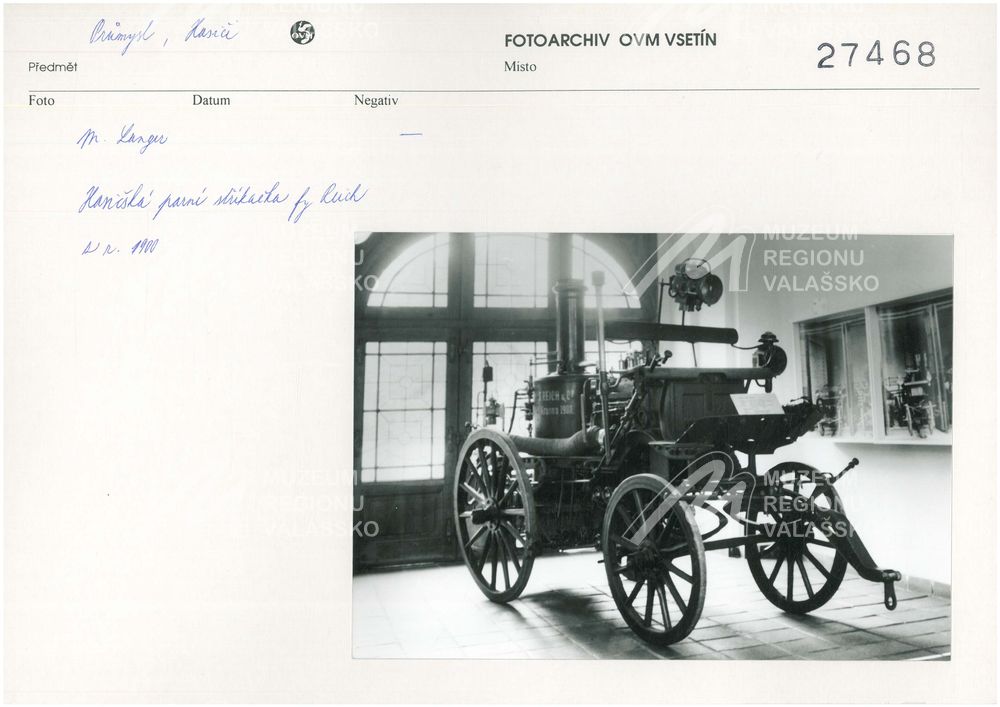 Průmysl, Hasiči
OVM
FOTOARCHIV OVM VSETÍN
27468
Předmět
Misto
Foto Datum Negativ
M. Langer —
Hasičská parní stříkačka fy Reich
z r. 1900
MUZEUM
REGIONU
VALAŠSKO
S. REICH & Co
Krásna 1900.
MUZEUM
REGIONU
VALAŠSKO
MUZEUM
REGIONU
VALAŠSKO
MUZEUM
REGIONU
VALAŠSKO